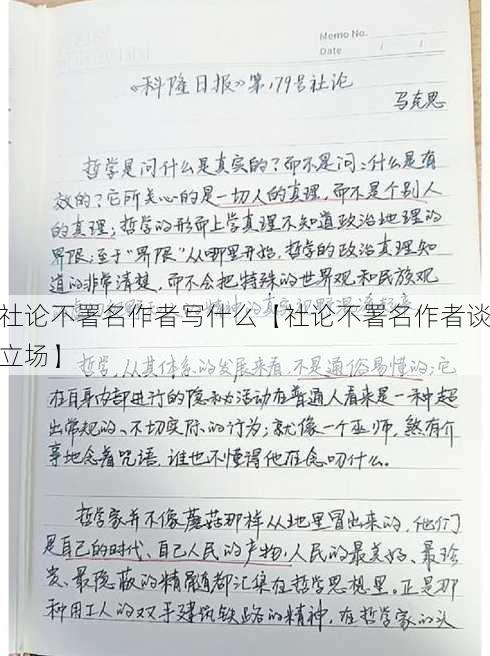 Memo No.
Date / /
《科隆日报》第179号社论
马克思
哲学是问什么是真实的？而不是问：什么是有
效的？它所关心的是一切人的真理，而不是个别人
的真理；哲学的形而上学真理不知道政治地理的
界限；至于“界限”从哪里开始，哲学的政治真理知
道的非常清楚，而不会把特殊的世界观和民族观
社论不署名作者写什么【社论不署名作者谈
立场】
哲学，从其体系的发展来看，不是通俗易懂的；它
在自身内部进行的隐秘活动在普通人看来是一种超
出常规的、不切实际的行为；就像一个巫师，煞有介
事地念着咒语，谁也不懂得他在念叨什么。
哲学家并不像蘑菇那样从地里冒出来的，他们
是自己的时代、自己人民的产物，人民的最美好、最珍
贵、最隐蔽的精髓都汇集在哲学思想里。正是那
种用工人的双手建筑铁路的精神，在哲学家的头